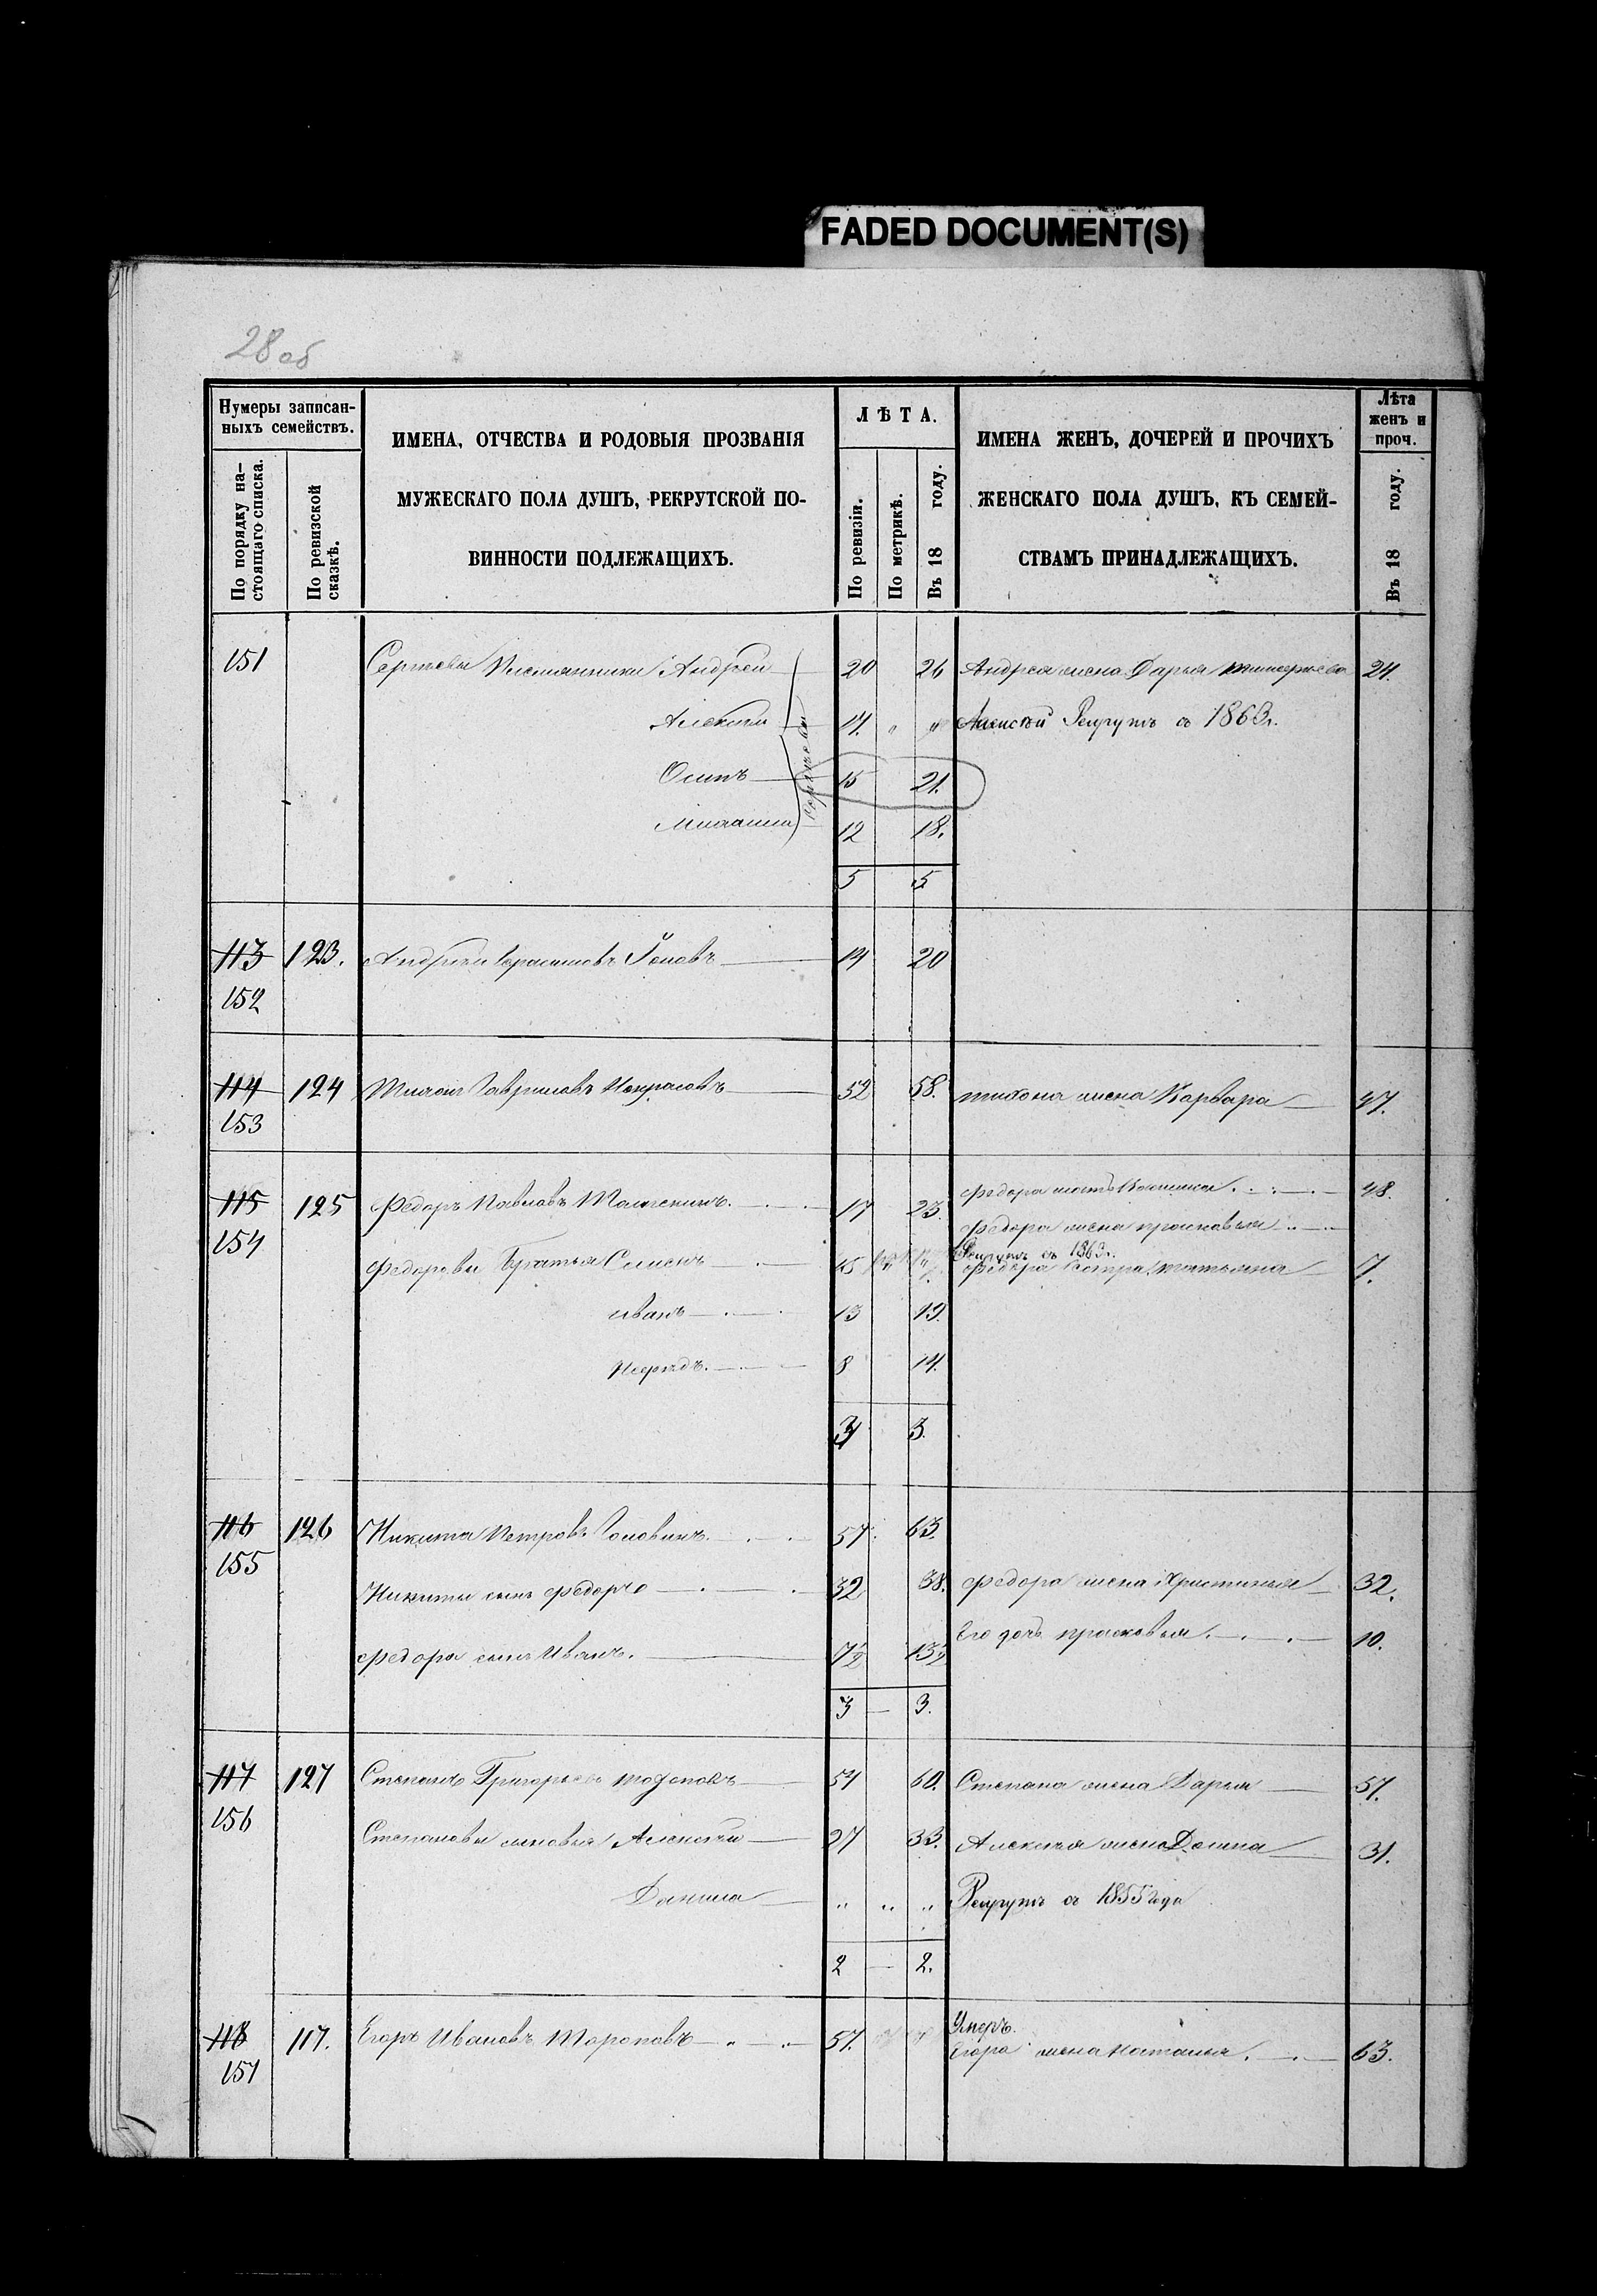 FADED DOCUMENT(S)
28 об
Нумеры записан-
ныхъ семействъ.
По порядку на-
стоящаго списка.
По ревизской
сказкѣ.
ИМЕНА, ОТЧЕСТВА И РОДОВЫЯ ПРОЗВАНІЯ
МУЖЕСКАГО ПОЛА ДУШЪ, РЕКРУТСКОЙ ПО-
ВИННОСТИ ПОДЛЕЖАЩИХЪ.
ЛѢТА.
По ревизіи.
По метрикѣ.
Въ 18 году.
ИМЕНА ЖЕНЪ, ДОЧЕРЕЙ И ПРОЧИХЪ
ЖЕНСКАГО ПОЛА ДУШЪ, КЪ СЕМЕЙ-
СТВАМЪ ПРИНАДЛЕЖАЩИХЪ.
Лѣта
женъ и
проч.
Въ 18 году.
151 Племянники Андрей 20 26 Андрея жена Дарья 24.
Алексѣй 14. " " Алексѣй Рекрутъ съ 1863г.
Осипъ 15 21.
Михаила 12 18.
5 5
113 123. Андрей Герасимовъ 14 20
152
114 124 Тихонъ Гавриловъ Некрасовъ 52 58. Тихона жена Варвара 47.
153
115 125 Федоръ Павловъ 17 23. Федора мать 48.
154 Федора жена Прасковья
Федоровы Братья Семенъ 15 Рекрутъ съ 1863г.
Федора Сестра Татьяна 7.
Иванъ 13 19.
8 14.
3 3.
116 126 Никита Петровъ Головинъ 57. 63.
155
Никиты сынъ Федоръ 32 38. Федора жена Христинья 32.
Его дочь Прасковья 10.
Федора сынъ Иванъ. 7½ 13½
3 3.
117 127 Степанъ Григорьевъ 54 60. Степана жена Дарья 57.
156
Степановы сыновья Алексѣй 27 33. Алексѣя жена Домна 31.
Данила " " " Рекрутъ съ 1855 года
2 2.
118 117. Егоръ Ивановъ Тороповъ 57. Умеръ.
157 Егора жена Наталья 63.